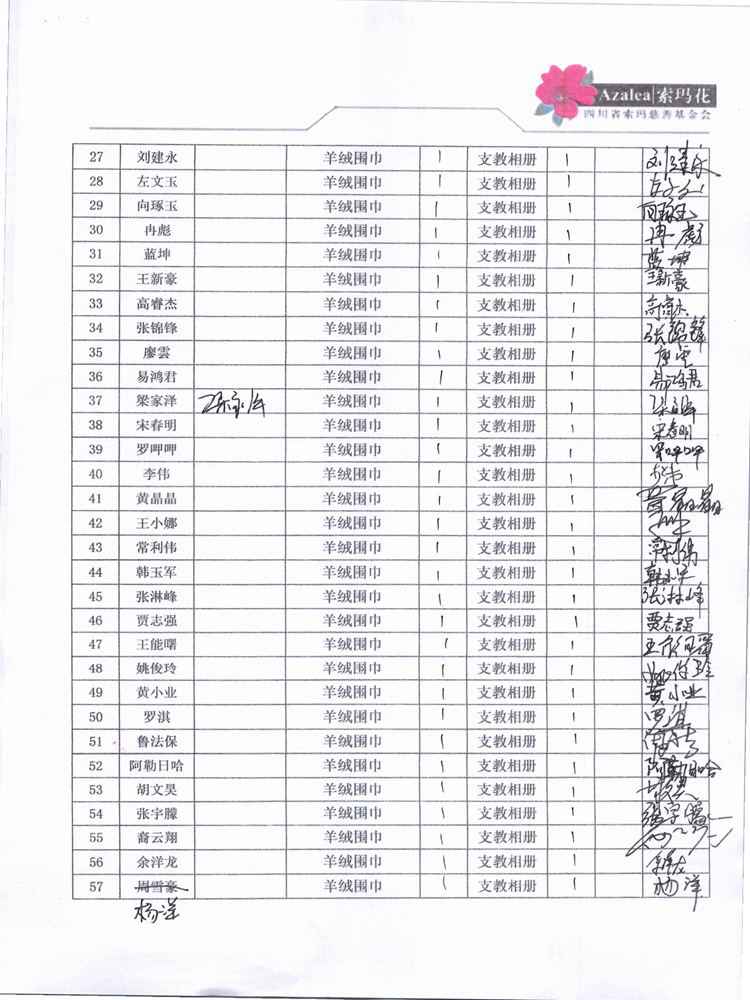 Azalea|索玛花
四川省索玛慈善基金会
27 刘建永 羊绒围巾 1 支教相册 1 刘建永
28 左文玉 羊绒围巾 1 支教相册 1
29 向琢玉 羊绒围巾 1 支教相册 1 向琢玉
30 冉彪 羊绒围巾 1 支教相册 1 冉彪
31 蓝坤 羊绒围巾 1 支教相册 1 蓝坤
32 王新豪 羊绒围巾 1 支教相册 1 王新豪
33 高睿杰 羊绒围巾 1 支教相册 1
34 张锦锋 羊绒围巾 1 支教相册 1 张锦锋
35 廖雲 羊绒围巾 1 支教相册 1
36 易鸿君 羊绒围巾 1 支教相册 1 易鸿君
37 梁家泽 羊绒围巾 1 支教相册 1
38 宋春明 羊绒围巾 1 支教相册 1 宋春明
39 罗呷呷 羊绒围巾 1 支教相册 1 罗呷呷
40 李伟 羊绒围巾 1 支教相册 1
41 黄晶晶 羊绒围巾 1 支教相册 1 黄晶晶
42 王小娜 羊绒围巾 1 支教相册 1
43 常利伟 羊绒围巾 1 支教相册 1 常利伟
44 韩玉军 羊绒围巾 1 支教相册 1 韩玉军
45 张淋峰 羊绒围巾 1 支教相册 1 张淋峰
46 贾志强 羊绒围巾 1 支教相册 1 贾志强
47 王能曙 羊绒围巾 1 支教相册 1 王能曙
48 姚俊玲 羊绒围巾 1 支教相册 1 姚俊玲
49 黄小业 羊绒围巾 1 支教相册 1 黄小业
50 罗淇 羊绒围巾 1 支教相册 1 罗淇
51 鲁法保 羊绒围巾 1 支教相册 1
52 阿勒日哈 羊绒围巾 1 支教相册 1 阿勒日哈
53 胡文昊 羊绒围巾 1 支教相册 1
54 张宇朦 羊绒围巾 1 支教相册 1 张宇朦
55 裔云翔 羊绒围巾 1 支教相册 1
56 余洋龙 羊绒围巾 1 支教相册 1
57 周雪豪 羊绒围巾 1 支教相册 1 杨洋
杨洋